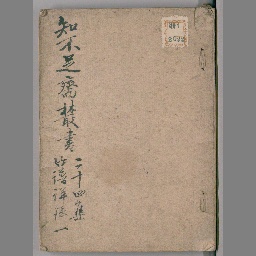 知不足齋叢書
二十四集
竹譜詳録一